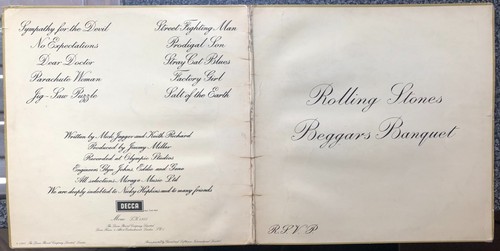 Sympathy for the Devil
No Expectations
Dear Doctor
Parachute Woman
Jig-Saw Puzzle
Street Fighting Man
Prodigal Son
Stray Cat Blues
Factory Girl
Salt of the Earth
Written by Mick Jagger and Keith Richard
Produced by Jimmy Miller
Recorded at Olympic Studios
Engineer Glyn Johns, Eddie and Gene
All selections Mirage Music Ltd
We are deeply indebted to Nicky Hopkins and to many friends
DECCA
Mono
Rolling Stones
Beggars Banquet
R.S.V.P.